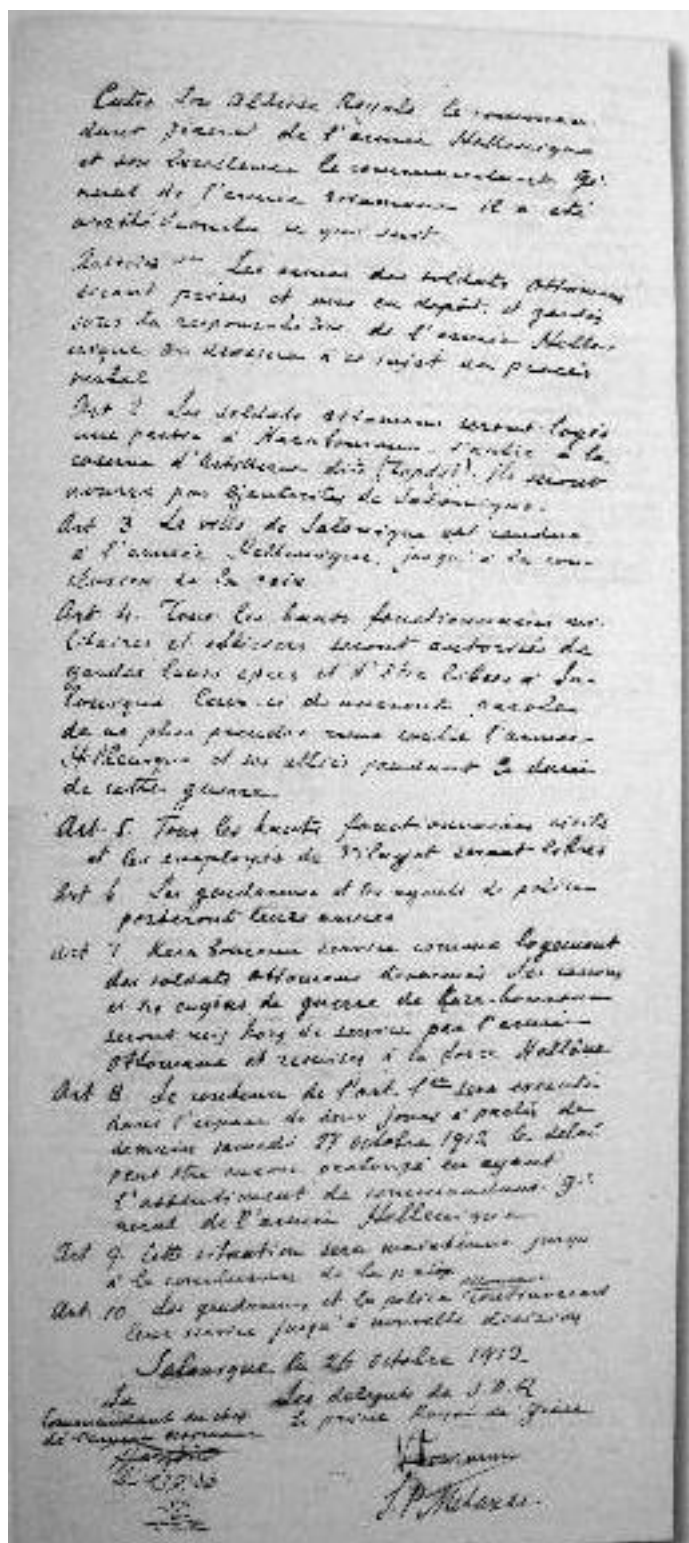 Entre Son Altesse Royale le comman-
dant general de l'armée Hellenique
et son Excellence le commandant gé-
neral de l'armée ottomane il a été
arrêté ce qui suit.
Les armes des soldats ottomans
seront prises et mis en depôt, et gardés
sous la responsabilité de l'armée Helle-
nique. On dressera à ce sujet un procès
verbal
Art 2 Les soldats ottomans seront logés
une partie à Karabournou, l'autre à la
caserne d'Artillerie dite (Topdji). Ils seront
nourris par de Salonique.
Art 3 La ville de Salonique est rendue
à l'armée Hellenique, jusqu'à la con-
clusion de la paix
Art 4. Tous les hauts fonctionnaires mi-
litaires et officiers seront autorisés de
garder leurs épées et d'être libres à Sa-
lonique. Ceux-ci donneront parole
de ne plus prendre armes contre l'armée
Hellenique et ses alliés pendant la durée
de cette guerre
Art. 5. Tous les hauts fonctionnaires civils
et les employés de Vilayet seront libres
Art 6 Les gendarmes et les agents de police
porteront leurs armes
Art 7 Karabournou servira comme logement
des soldats ottomans désarmés. Les canons
et les engins de guerre de Kara-bournou
seront mis hors de service par l'armée
Ottomane et remises à la force Hellène
Art 8 Le contenu de l'art. 1er sera executé
dans l'espace de deux jours à partir de
demain samedi 27 octobre 1912 le delai
peut être encore prolongé en ayant
l'assentiment de commandant gé-
neral de l'armée Hellenique
Art 9 Cette situation sera maintenue jusqu'
à la conclusion de la paix
Art. 10 Les gendarmes et la police ottomane continueront
leur service jusqu'à nouvelle decision
Salonique le 26 octobre 1912
Le Les delegués de S.A.R
Commandant en chef le prince Royal de Grèce
de l'armée ottomane